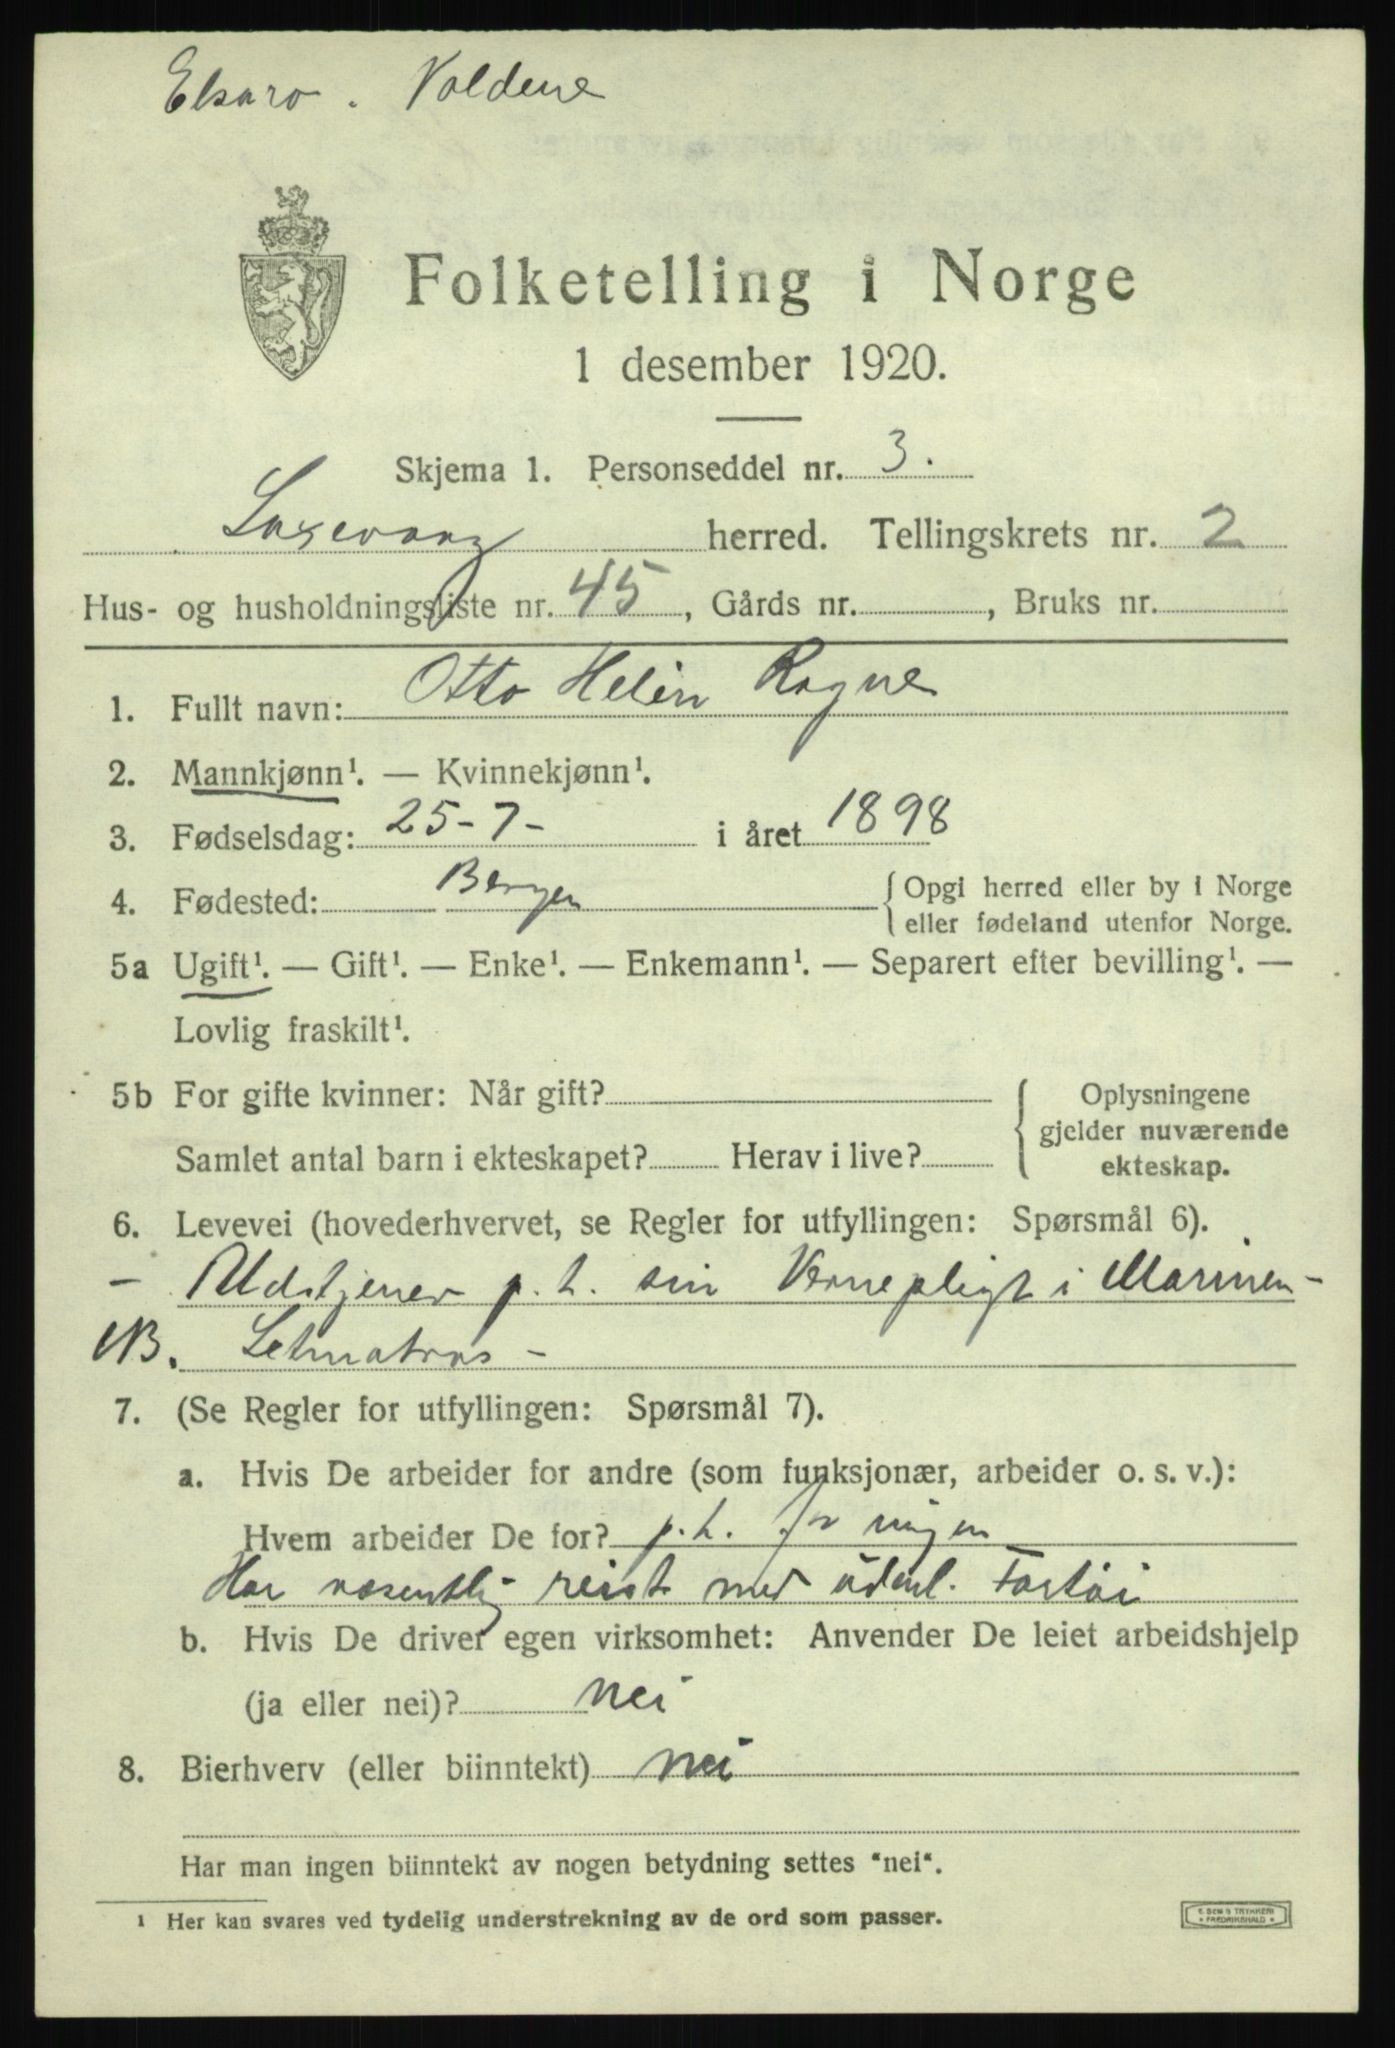 Elsaro. Valdene
Folketelling i Norge
1 desember 1920.
Skjema 1. Personseddel nr. 3.
Laxevaag herred. Tellingskrets nr. 2
Hus- og husholdningsliste nr. 45, Gårds nr. , Bruks nr.
1. Fullt navn: Otto Helèn Rogne
2. Mannkjønn¹. — Kvinnekjønn¹.
3. Fødselsdag: 25-7- i året 1898
4. Fødested: Bergen { Opgi herred eller by i Norge
eller fødeland utenfor Norge.
5a Ugift¹. — Gift¹. — Enke¹. — Enkemann¹. — Separert efter bevilling¹. —
Lovlig fraskilt¹.
5b For gifte kvinner: Når gift? { Oplysningene
gjelder nuværende
Samlet antal barn i ekteskapet? Herav i live?
ekteskap.
6. Levevei (hovederhvervet, se Regler for utfyllingen: Spørsmål 6).
- Udtjener p.t. sin Vernepligt i Marinen -
NB. Letmatros -
7. (Se Regler for utfyllingen: Spørsmål 7).
a. Hvis De arbeider for andre (som funksjonær, arbeider o. s. v.):
Hvem arbeider De for? p.t. for ingen
Har væsentlig reist med udenl. Fartøi
b. Hvis De driver egen virksomhet: Anvender De leiet arbeidshjelp
(ja eller nei)? nei
8. Bierhverv (eller biinntekt) nei
Har man ingen biinntekt av nogen betydning settes "nei".
¹ Her kan svares ved tydelig understrekning av de ord som passer.